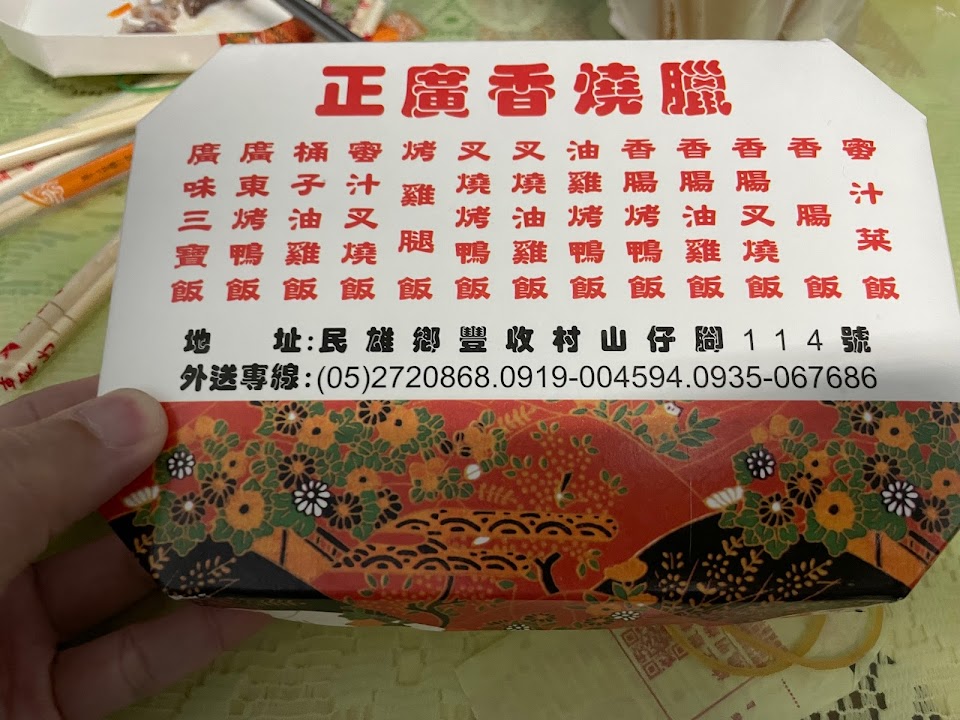 正廣香燒臘
廣味三寶飯
廣東烤鴨飯
桶子油雞飯
蜜汁叉燒飯
烤雞腿飯
叉燒烤鴨飯
叉燒油雞飯
油雞烤鴨飯
香腸烤鴨飯
香腸油雞飯
香腸叉燒飯
香腸飯
蜜汁菜飯
地 址:民雄鄉豐收村山仔腳114號
外送專線:(05)2720868.0919-004594.0935-067686